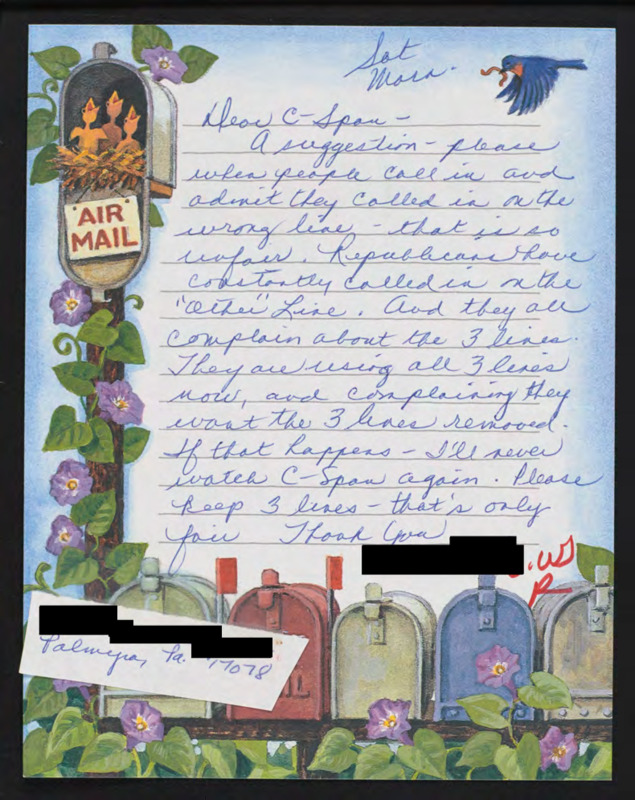 Sat
Morn.
Dear C-Span-
A suggestion - please
when people call in and
admit they called in on the
wrong line - that is so
unfair. Republicans have
constantly called in on the
"Other" Line. And they all
complain about the 3 lines.
They are using all 3 lines
now, and complaining they
want the 3 lines removed.
If that happens - I'll never
watch C-Span again. Please
keep 3 lines - that's only
fair Thank You
AIR
MAIL
Palmyra, Pa. 17078